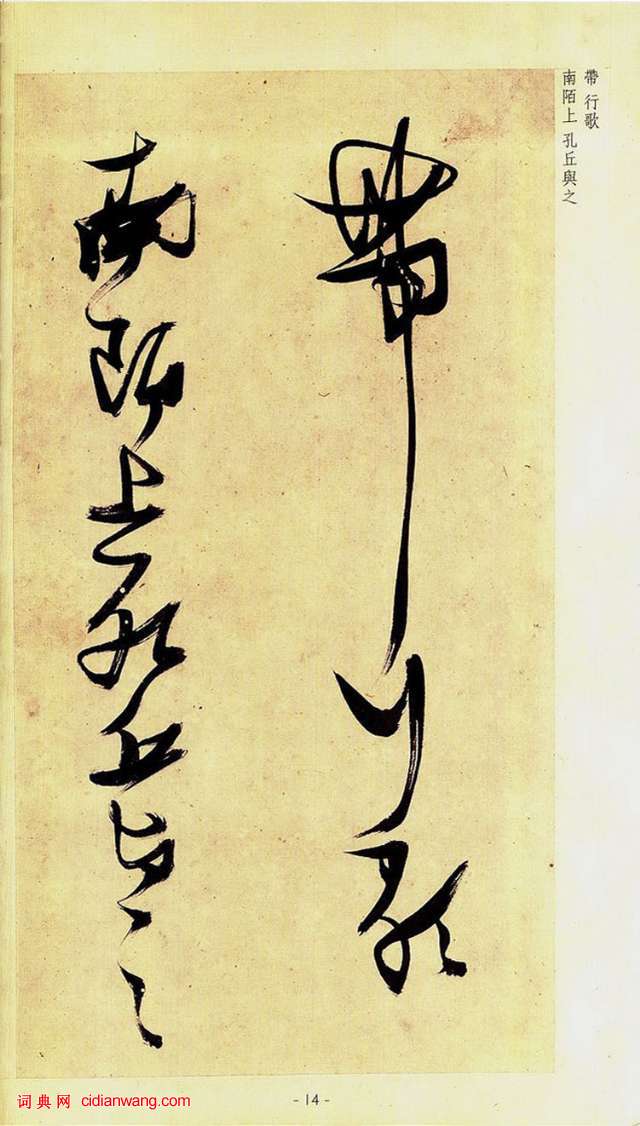 帶 行歌
南陌上 孔丘與之
帶行歌
南陌上孔丘與之
- 14 -
词典网 cidianwang.com